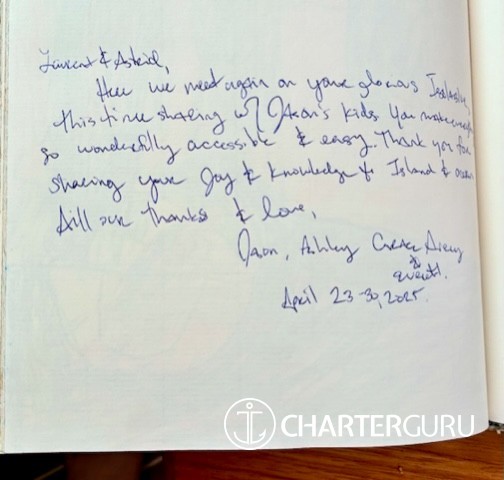 Laurent & Astrid,
Here we meet again on your glorious
this time sharing w/ Jason's kids. You make
so wonderfully accessible & easy. Thank you for
sharing your Joy & Knowledge of Island & ocean
All our thanks & love,
Jason, Ashley Avery
&
April 23-30, 2025.
CHARTERGURU